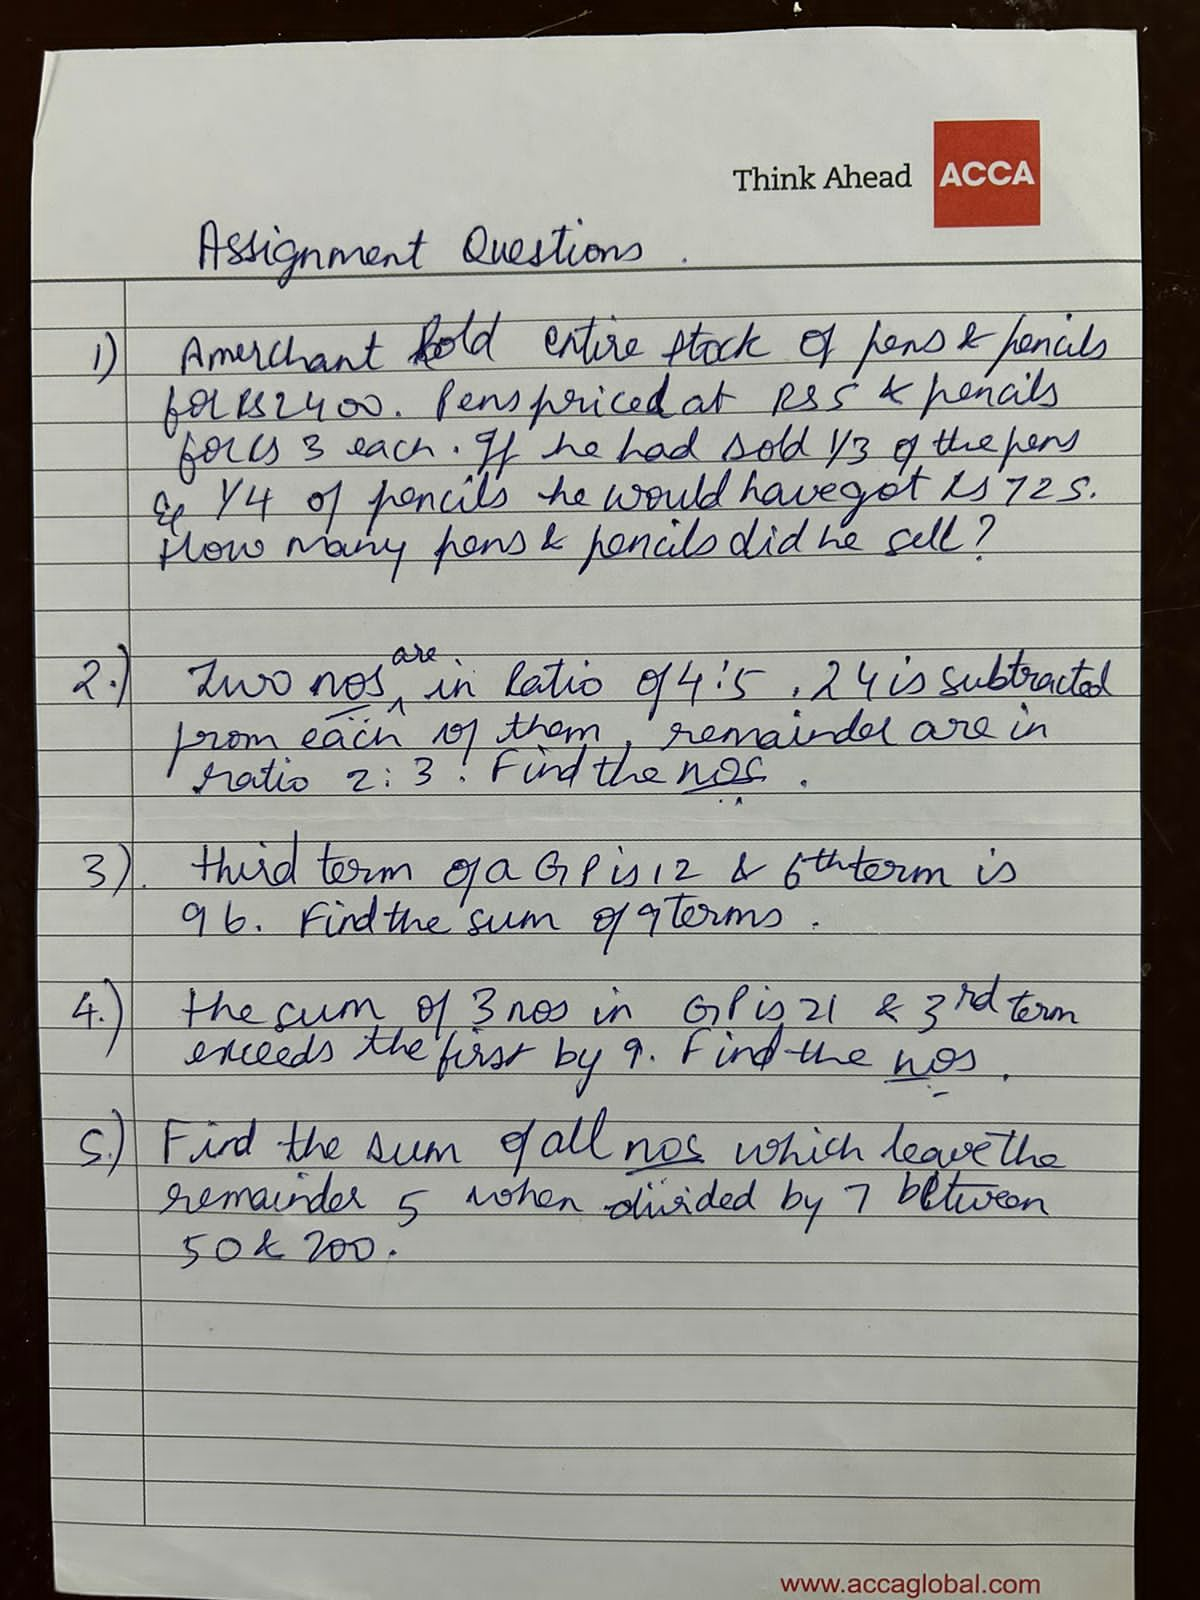 Think Ahead ACCA
Assignment Questions.
1) A merchant sold entire stock of pens & pencils
for Rs 2400. Pens priced at RS 5 & pencils
for Rs 3 each. If he had sold 1/3 of the pens
& 1/4 of pencils he would have got Rs 725.
How many pens & pencils did he sell?
2.) Two nos are in ratio of 4:5. 24 is subtracted
from each of them, remainder are in
ratio 2:3. Find the nos.
3). third term of a GP is 12 & 6th term is
96. Find the sum of 9 terms.
4.) the sum of 3 nos in GP is 21 & 3rd term
exceeds the first by 9. Find the nos.
5.) Find the sum of all nos which leave the
remainder 5 when divided by 7 between
50 & 200.
www.accaglobal.com